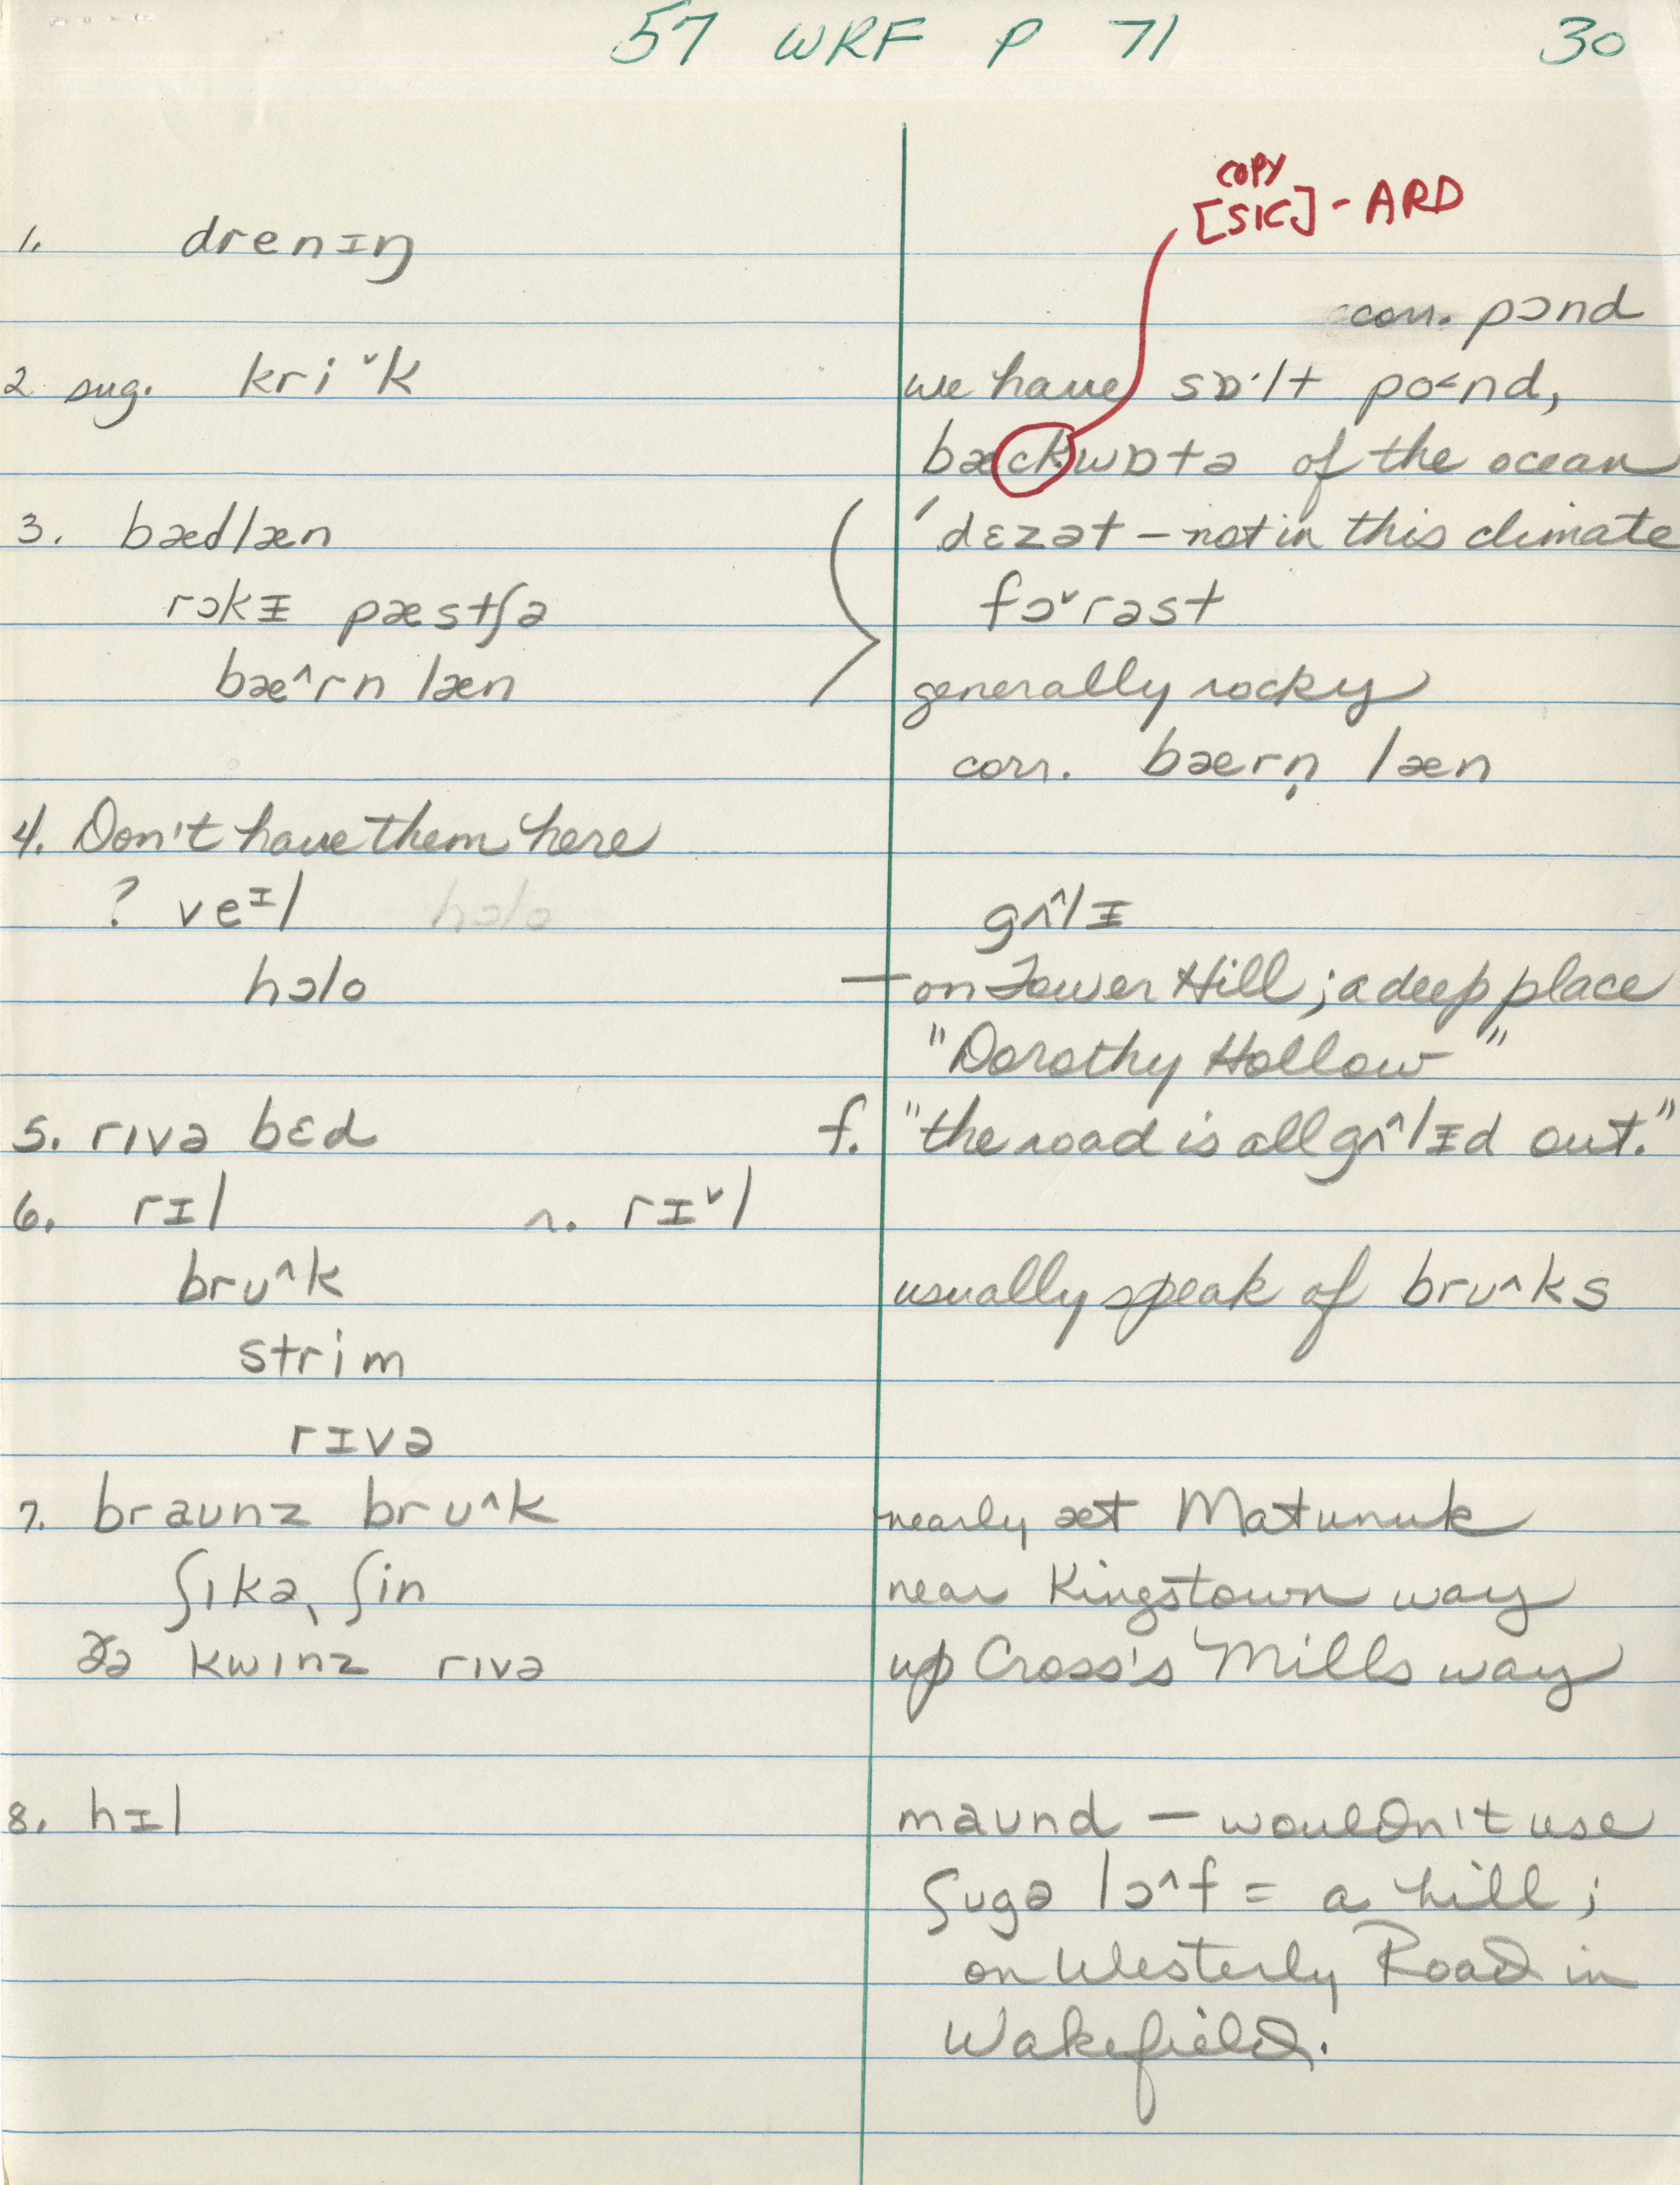 57 WRF P 71 30
COPY
[SIC] - ARD
1. drenɪŋ
corr. pɔnd
2 sug. kri˅k we have sɒ·lt po<nd,
bæckwɒtə of the ocean
3. bædlæn 'dɛzət – not in this climate
rɔkᵻ pæstʃə fɔ˅rəst
bæ^rn læn generally rocky
corr. bærn̩ læn
4. Don't have them here
? veᶦl hɔlo gʌ^lᵻ
hɔlo — on Tower Hill; a deep place
"Dorothy Hollow"
5. rɪvə bɛd f. "the road is all gʌ^lᵻd out."
6. rɪl r. rɪ˅l
brʊ^k usually speak of brʊ^ks
strim
rɪvə
7. braʊnz brʊ^k nearly æt Matunuk
ʃɪkə, ʃin near Kingstown way
ðə kwinz rɪvə up Cross's Mills way
8. hɪl maʊnd – wouldn't use
ʃʊgə lɔ^f = a hill;
on Westerly Road in
Wakefield.